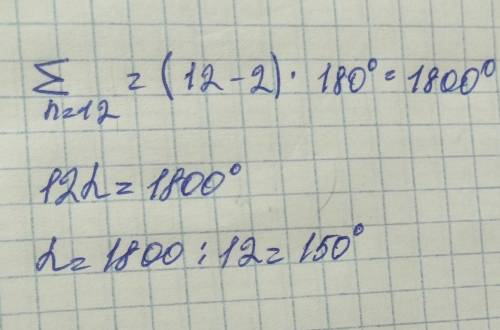 ∑ n=12 = (12-2)·180°=1800°
12α=1800°
α=1800:12=150°